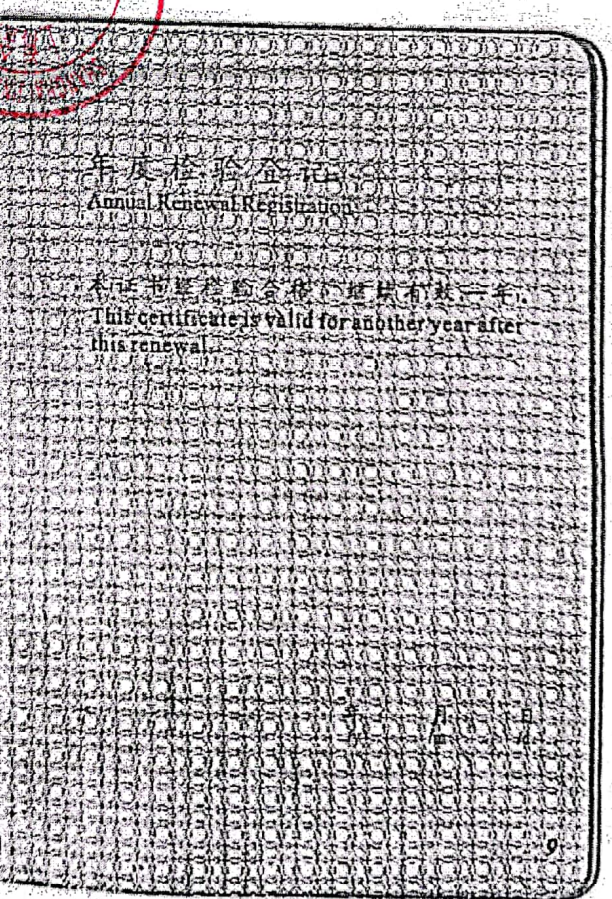 年度检验登记
Annual Renewal Registration
本证书经检验合格，继续有效一年。
This certificate is valid for another year after
this renewal.
年 月 日
/y /m /d
9